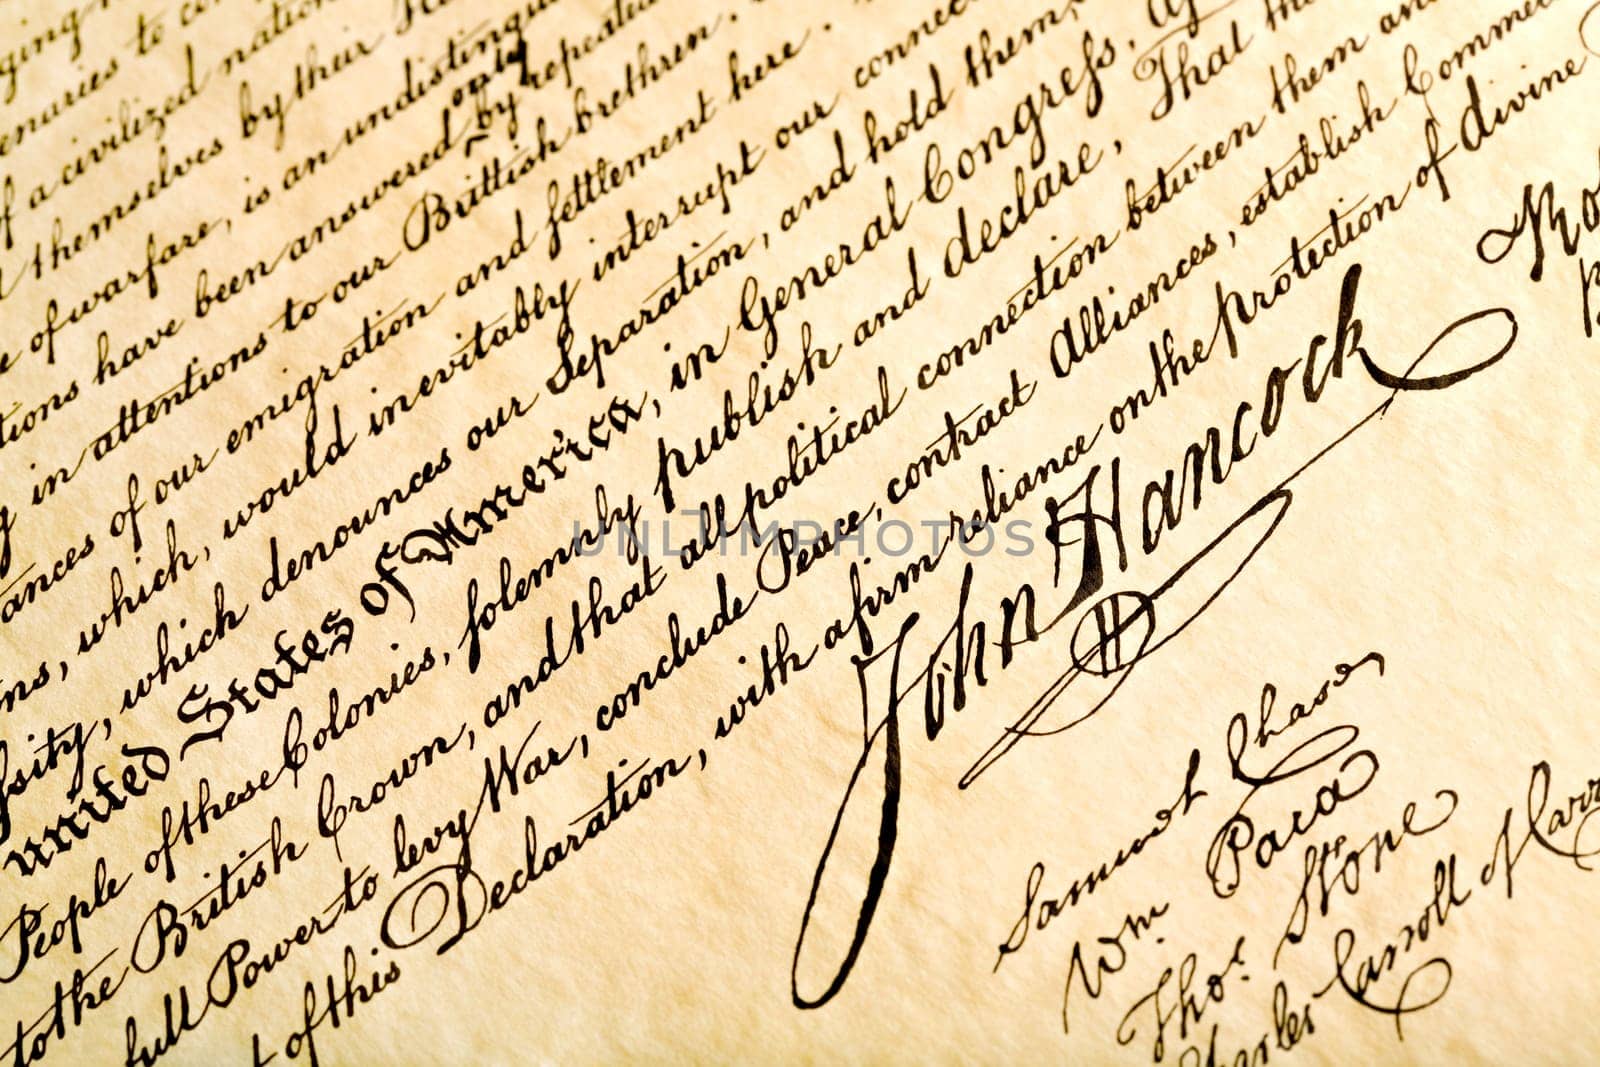 enaries to
of a civilized nation
themselves by their
e of warfare, is an undistingu
only
tions have been answered by repeated
g in attentions to our Brittish brethren.
ances of our emigration and settlement here.
ns, which, would inevitably interrupt our connec
ssity, which denounces our Separation, and hold them,
united States of America, in General Congress,
People of these Colonies, solemnly publish and declare, That
to the British Crown, and that all political connection between them an
full Power to levy War, conclude Peace, contract Alliances, establish Commer
t of this Declaration, with a firm reliance on the protection of divine
John Hancock
Samuel Chase
Wm. Paca
Thos. Stone
Charles Carroll
UNLIMPHOTOS